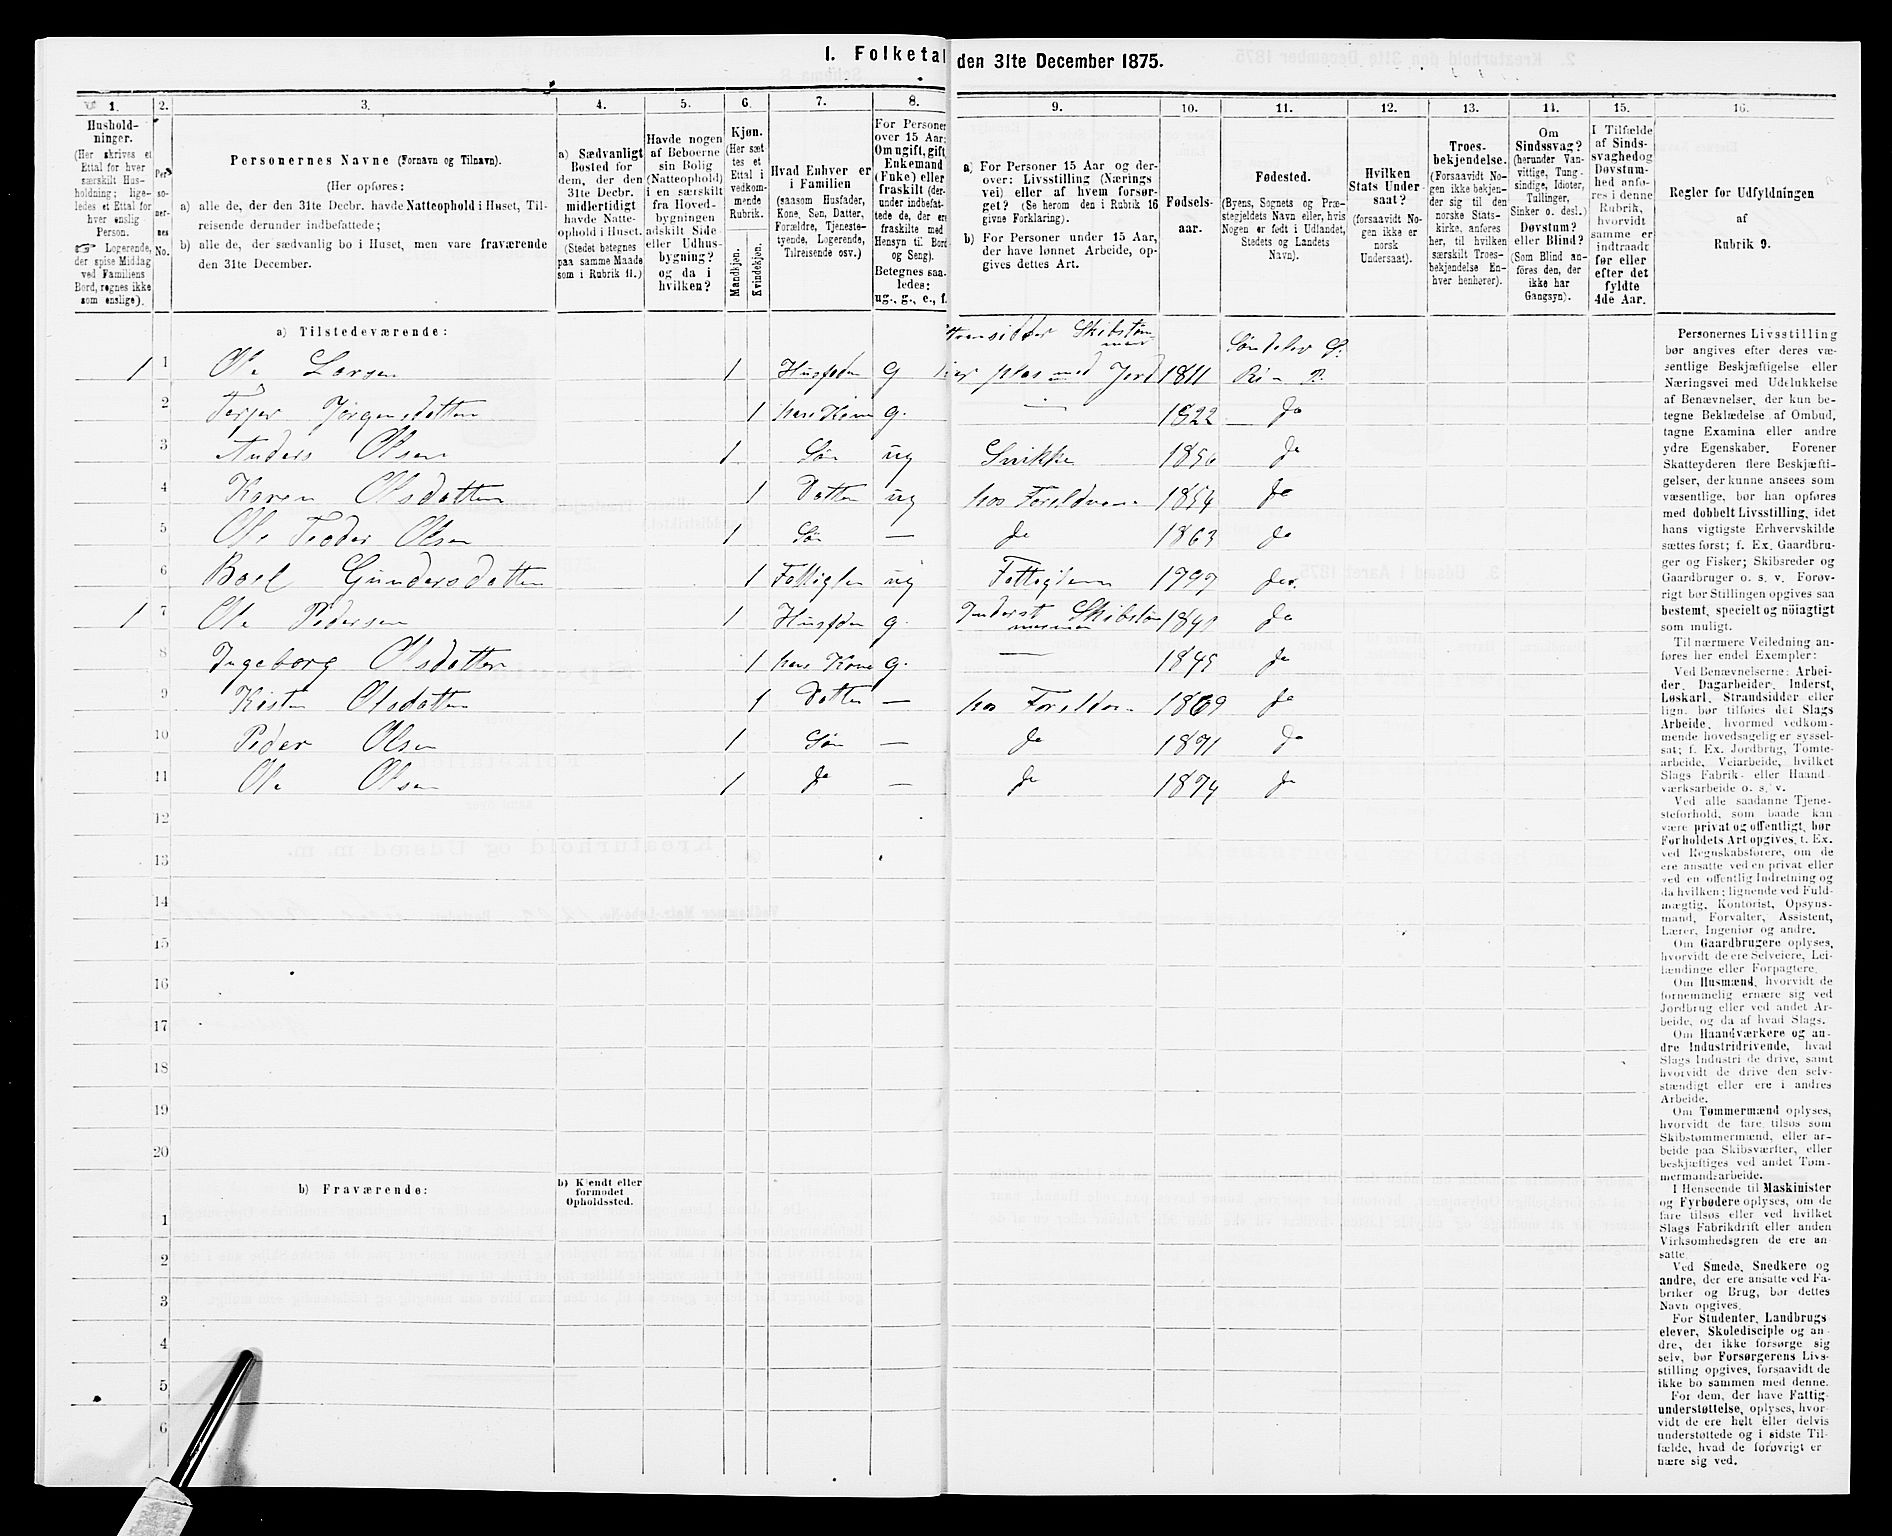 I. Folketal den 31te December 1875.
1. 2. 3. 4. 5. 6. 7. 8. 9. 10. 11. 12. 13. 14. 15. 16.
Hushold-
ninger.
(Her skrives et
Ettal for hver
særskilt Hus-
holdning; lige-
ledes et Ettal for
hver enslig
Person.
☞ Logerende,
der spise Middag
ved Familiens
Bord, regnes ikke
som enslige).
Per-
so-
ner-
nes
No.
Personernes Navne (Fornavn og Tilnavn).
(Her opføres:
a) alle de, der den 31te Decbr. havde Natteophold i Huset, Til-
reisende derunder indbefattede;
b) alle de, der sædvanlig bo i Huset, men vare fraværende
den 31te December.
a) Sædvanligt
Bosted for
dem, der den
31te Decbr.
midlertidigt
havde Natte-
ophold i Huset.
(Stedet betegnes
paa samme Maade
som i Rubrik 11.)
Havde nogen
af Beboerne
sin Bolig
(Natteophold)
i en særskilt
fra Hoved-
bygningen
adskilt Side-
eller Udhus-
bygning?
og da i
hvilken?
Kjøn.
(Her sæt-
tes et
Ettal i
vedkom-
mende
Rubrik.
Mandkjøn.
Kvindekjøn.
Hvad Enhver er
i Familien
(saasom Husfader,
Kone, Søn, Datter,
Forældre, Tjeneste-
tyende, Logerende,
Tilreisende osv.)
For Personer
over 15 Aar:
Om ugift, gift,
Enkemand
(Enke) eller
fraskilt (der-
under indbefat-
tede de, der ere
fraskilte med
Hensyn til Bord
og Seng).
Betegnes saa-
ledes:
ug., g., e., f.
a) For Personer 15 Aar og der-
over: Livsstilling (Nærings-
vei) eller af hvem forsør-
get? (Se herom den i Rubrik 16
givne Forklaring).
b) For Personer under 15 Aar,
der have lønnet Arbeide, op-
gives dettes Art.
Fødsels-
aar.
Fødested.
(Byens, Sognets og Præ-
stegjeldets Navn eller, hvis
Nogen er født i Udlandet,
Stedets og Landets
Navn).
Hvilken
Stats Under-
saat?
(forsaavidt No-
gen ikke er
norsk
Undersaat).
Troes-
bekjendelse.
(Forsaavidt No-
gen ikke bekjen-
der sig til den
norske Stats-
kirke, anføres
her, til hvilken
særskilt Troes-
bekjendelse En-
hver henhører).
Om
Sindssvag?
(herunder Van-
vittige, Tung-
sindige, Idioter,
Tullinger,
Sinker o. desl.)
Døvstum?
eller Blind?
(Som Blind an-
føres den, der
ikke har
Gangsyn).
I Tilfælde
af Sinds-
svaghed og
Døvstum-
hed anfø-
res i denne
Rubrik,
hvorvidt
samme er
indtraadt
før eller
efter det
fyldte
4de Aar.
Regler for Udfyldningen
af
Rubrik 9.
a) Tilstedeværende:
1 1 Ole Larsen 1 Husfader G med Jord 1811
2 Jørgensdatter 1 hans Kone g. — 1822 do
3 Anders Olsen 1 Søn ug 1856 do
4 Karen Olsdatter 1 Datter ug hos Foreldrene 1854 do
5 Ole Teoder Olsen 1 Søn — do 1863 do
6 Boel Gundersdatter 1 Fattiglem ug Fattiglem 1797 do.
1 7 Ole Pedersen 1 Husfader g. Inderst Skibstømmermand do
8 Ingeborg Olsdatter 1 hans Kone g. — 1845 do
9 Kristen Olsdatter 1 Datter — hos Foreldrene 1869 do
10 Peder Olsen 1 Søn — do 1871 do
11 Ole Olsen 1 do — do 1874 do
12
13
14
15
16
17
18
19
20
b) Fraværende:
b) Kjendt eller
formodet
Opholdssted.
1
2
3
4
5
6
Personernes Livsstilling
bør angives efter deres væ-
sentlige Beskjæftigelse eller
Næringsvei med Udelukkelse
af Benævnelser, der kun be-
tegne Beklædelse af Ombud,
tagne Examina eller andre
ydre Egenskaber. Forener
Skatteyderen flere Beskjæfti-
gelser, der kunne ansees som
væsentlige, bør han opføres
med dobbelt Livsstilling, idet
hans vigtigste Erhvervskilde
sættes først; f. Ex. Gaardbru-
ger og Fisker; Skibsreder og
Gaardbruger o. s. v. Forøv-
rigt bør Stillingen opgives saa
bestemt, specielt og nøiagtigt
som muligt.
Til nærmere Veiledning an-
føres her endel Exempler:
Ved Benævnelserne: Arbei-
der, Dagarbeider, Inderst,
Løskarl, Strandsidder eller
lign. bør tilføies det Slags
Arbeide, hvormed vedkom-
mende hovedsagelig er syssel-
sat; f. Ex. Jordbrug, Tomte-
arbeide, Veiarbeide, hvilket
Slags Fabrik- eller Haand-
værksarbeide o. s. v.
Ved alle saadanne Tjene-
steforhold, som baade kan
være privat og offentligt, bør
Forholdets Art opgives, t. Ex.
ved Regnskabsførere, om de
ere ansatte ved en privat eller
ved en offentlig Indretning og
da hvilken; lignende ved Fuld-
mægtig, Kontorist, Opsyns-
mand, Forvalter, Assistent,
Lærer, Ingeniør og andre.
Om Gaardbrugere oplyses,
hvorvidt de ere Selveiere, Lei-
lændinge eller Forpagtere.
Om Husmænd, hvorvidt de
fornemmelig ernære sig ved
Jordbrug eller ved andet Ar-
beide, og da af hvad Slags.
Om Haandværkere og an-
dre Industridrivende, hvad
Slags Industri de drive, samt
hvorvidt de drive den selv-
stændigt eller ere i andres
Arbeide.
Om Tømmermænd oplyses,
hvorvidt de fare tilsøs som
Skibstømmermænd, eller ar-
beide paa Skibsværfter, eller
beskjæftiges ved andet Tøm-
mermandsarbeide.
I Henseende til Maskinister
og Fyrbødere oplyses, om de
fare tilsøs eller ved hvilket
Slags Fabrikdrift eller anden
Virksomhedsgren de ere an-
satte.
Ved Smede, Snedkere og
andre, der ere ansatte ved Fa-
briker og Brug, bør dettes
Navn opgives.
For Studenter, Landbrugs-
elever, Skoledisciple og an-
dre, der ikke forsørge sig
selv, bør Forsørgerens Livs-
stilling opgives, forsaavidt de
ikke bo sammen med denne.
For dem, der have Fattig-
understøttelse, oplyses, hvor-
vidt de ere helt eller delvis
understøttede og i sidste Til-
fælde, hvad de forøvrigt er-
nære sig ved.